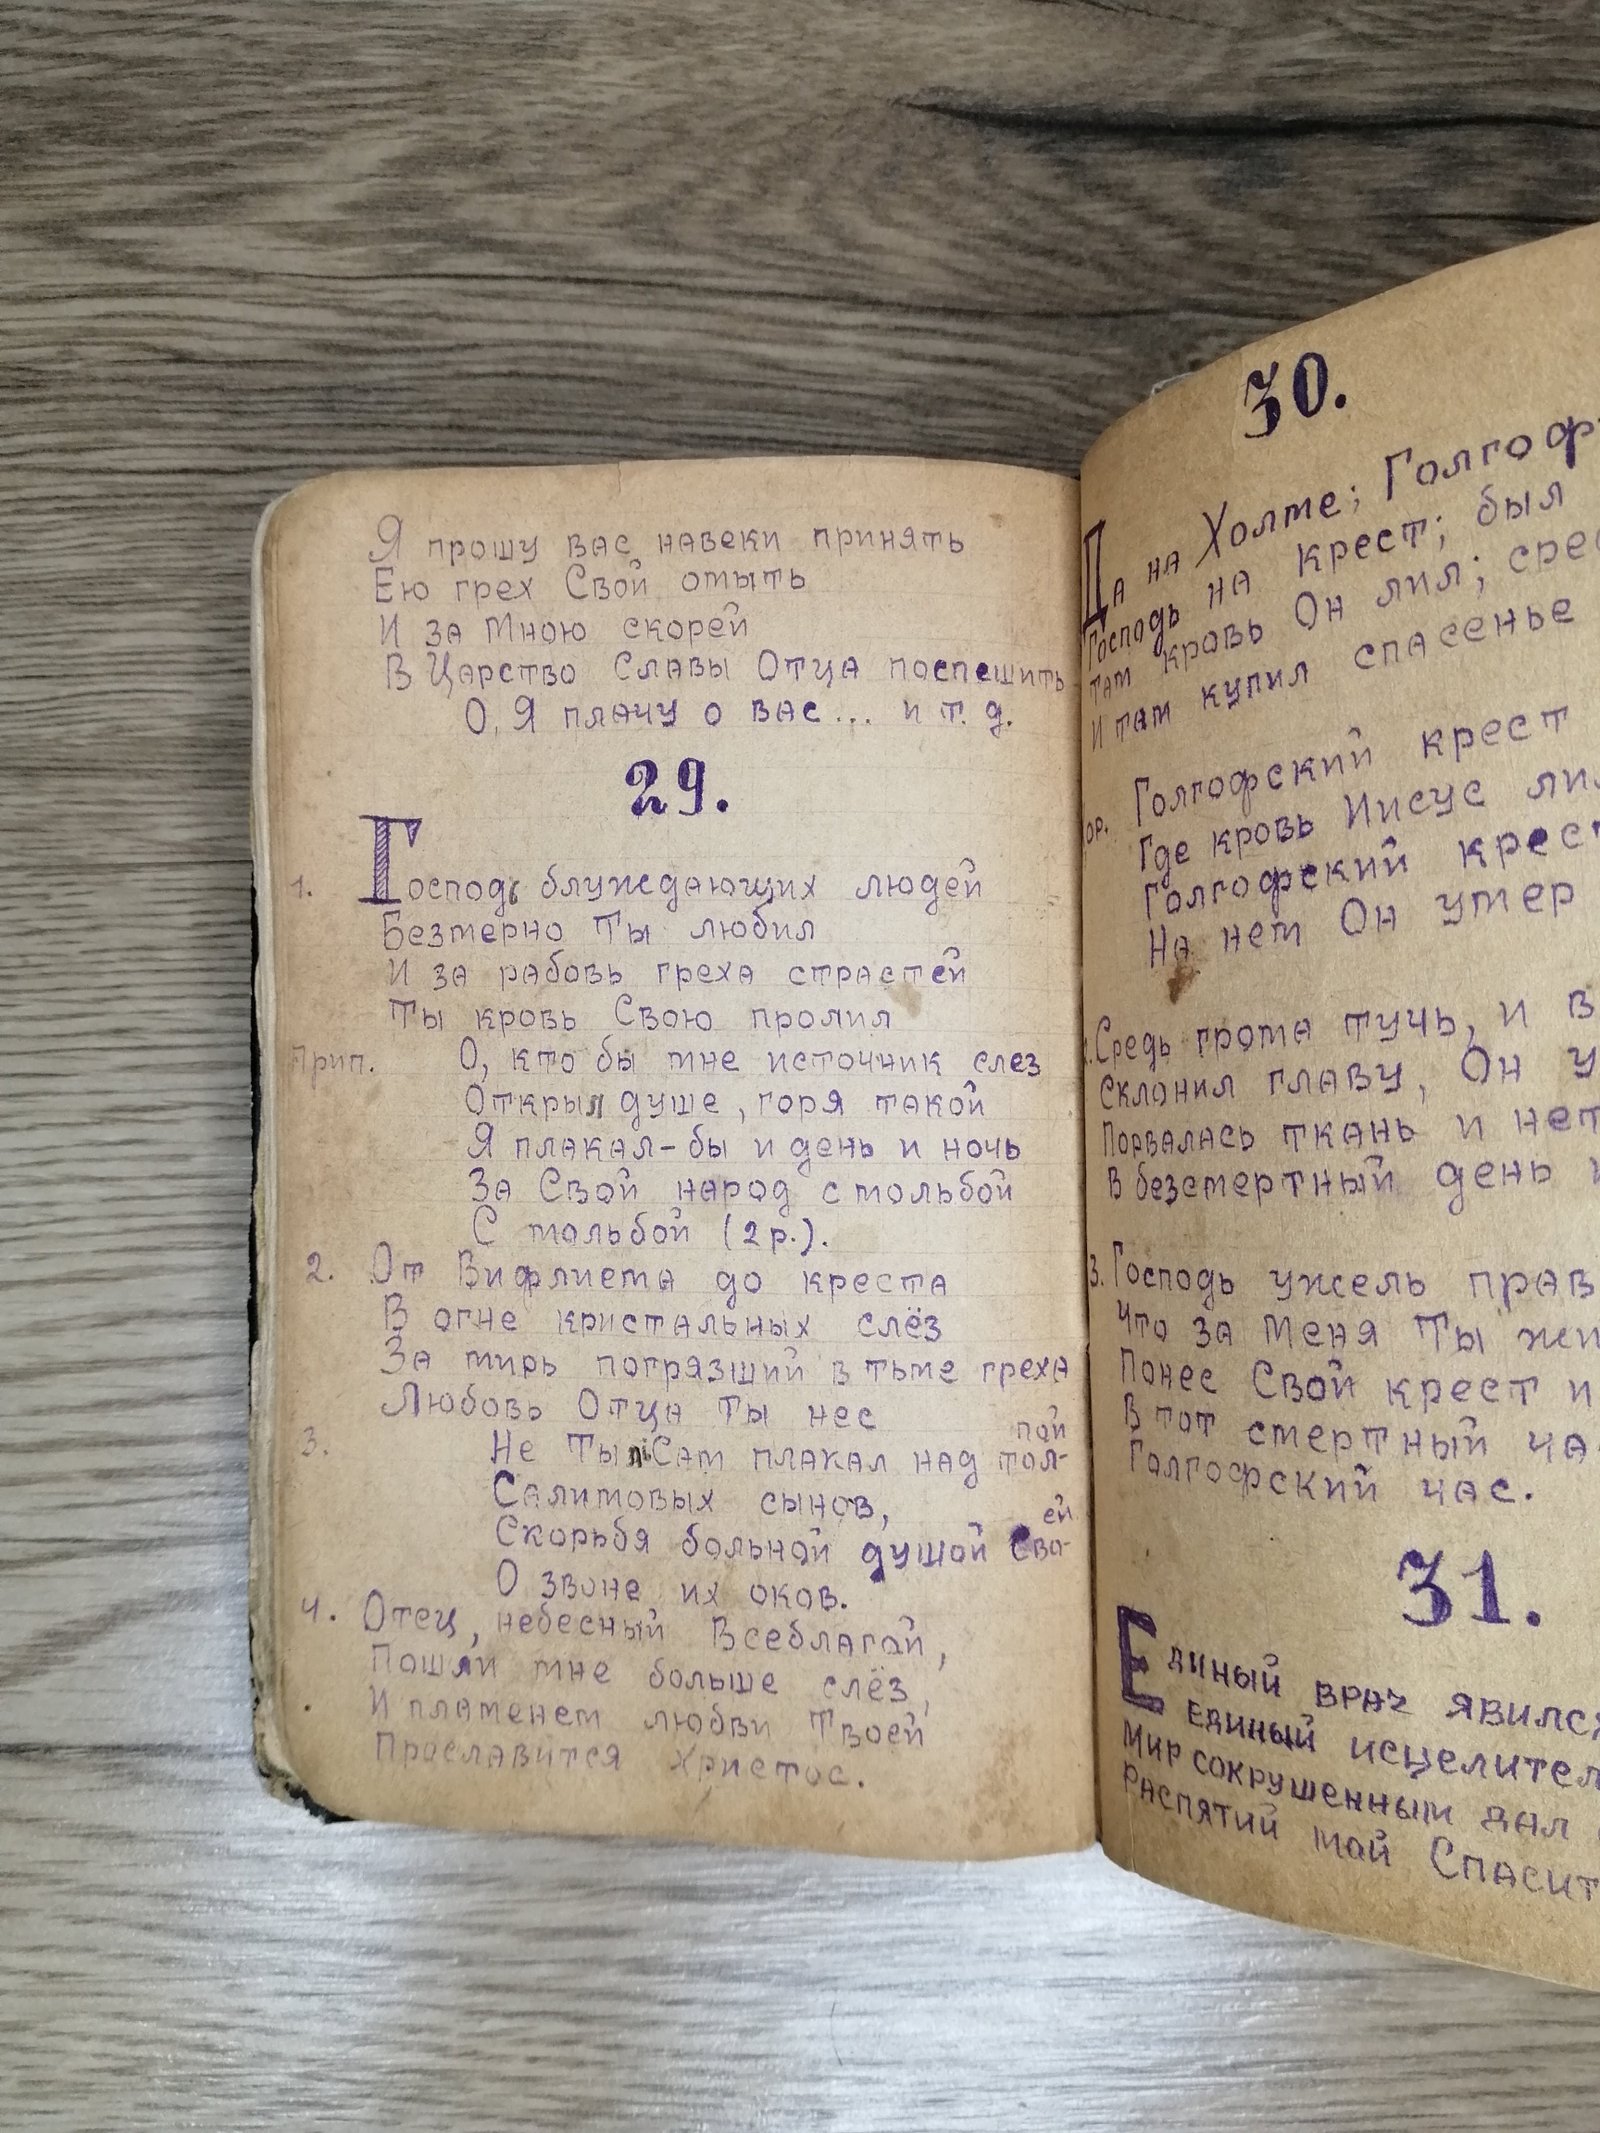 Я прошу вас навеки принять
Ею грех Свой омыть
И за Мною скорей
В Царство Славы Отца поспешить
О, Я плачу о вас... и т. д.
29.
1. Господь блуждающих людей
Безмерно Ты любил
И за рабовь греха страстей
Ты кровь Свою пролил
Прип. О, кто бы мне источник слез
Открыл душе, горя такой
Я плакал-бы и день и ночь
За Свой народ с мольбой
С мольбой (2 р.).
2. От Вифлиема до креста
В огне кристальных слёз
За мирь погрязший в тьме греха
Любовь Отца Ты нес
3. Не Ты ли Сам плакал над тол-
пой
Салимовых сынов,
Скорьбя больной душой Сво-
ей
О звоне их оков.
4. Отец, небесный Всеблагой,
Пошли мне больше слёз,
И пламенем любви Твоей
Прославится Христос.
30.
Да на Холме; Голгоф
Господь на крест; был
там кровь Он лил; сред
И там купил спасенье
ор. Голгофский крест
Где кровь Иисус лил
Голгофский крест
На нем Он умер
Средь грома тучь, и в
склонил главу, Он у
Порвалась ткань и нет
В безсмертный день и
3. Господь ужель прав
Что за меня Ты жи
Понес Свой крест и
В тот смертный ча
Голгофский час.
31.
Единый врач явилс
Единый исцелител
Мир сокрушенным дал
Распятий мой Спасит